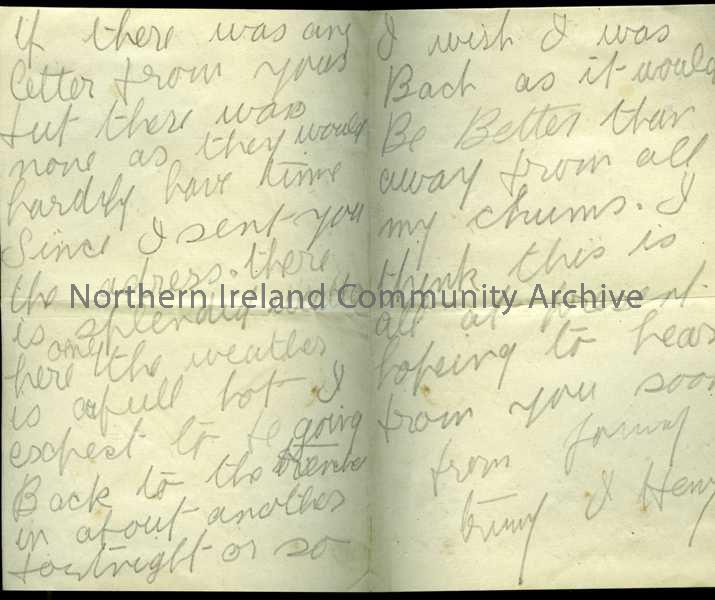 If there was any
letter from yous
but there was
none as they would
hardly have time
Since I sent you
the adress. there
is splendid
here only the weather
is afull hot I
expect to be going
Back to the trenches
in about another
fortnight or so
I wish I was
Back as it would
Be Better than
away from all
my chums. I
think this is
all at present.
hopeing to hear
from you soon
from
J Henry
Northern Ireland Community Archive